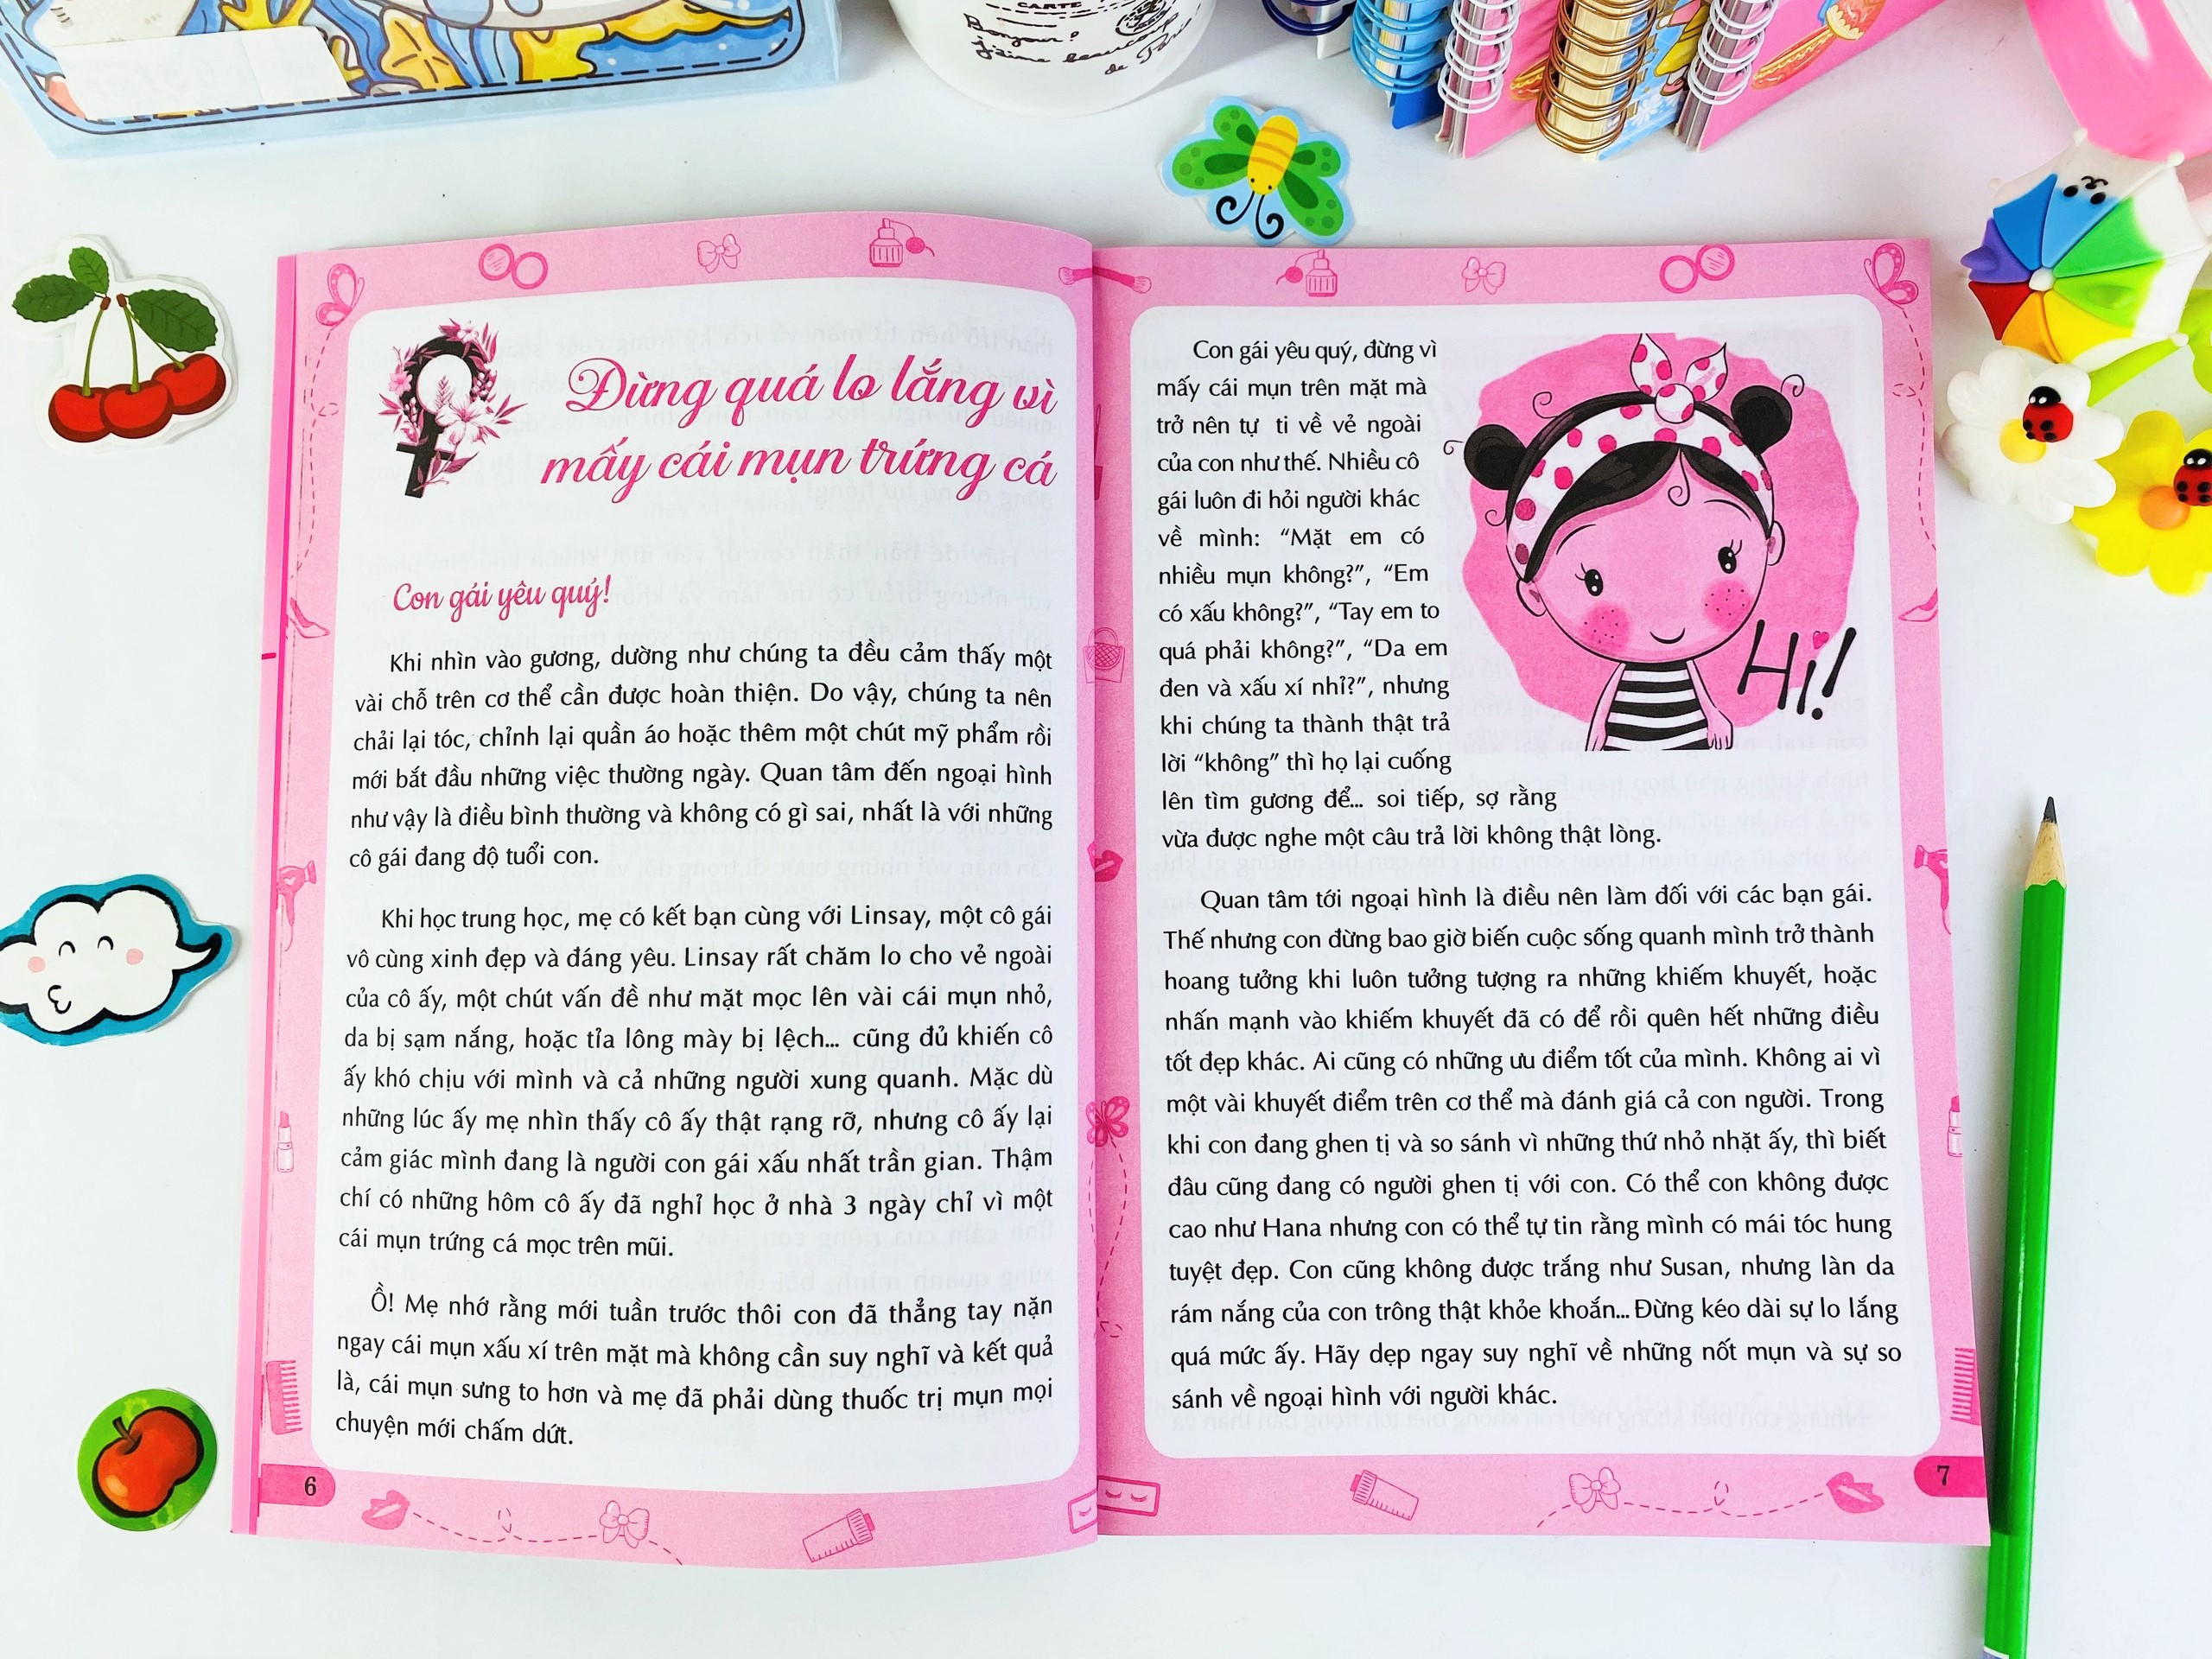 CARTE
Bonjour?
j'aime beaucoup
de Paris
Đừng quá lo lắng vì
mấy cái mụn trứng cá
Con gái yêu quý!
Khi nhìn vào gương, dường như chúng ta đều cảm thấy một
vài chỗ trên cơ thể cần được hoàn thiện. Do vậy, chúng ta nên
chải lại tóc, chỉnh lại quần áo hoặc thêm một chút mỹ phẩm rồi
mới bắt đầu những việc thường ngày. Quan tâm đến ngoại hình
như vậy là điều bình thường và không có gì sai, nhất là với những
cô gái đang độ tuổi con.
Khi học trung học, mẹ có kết bạn cùng với Linsay, một cô gái
vô cùng xinh đẹp và đáng yêu. Linsay rất chăm lo cho vẻ ngoài
của cô ấy, một chút vấn đề như mặt mọc lên vài cái mụn nhỏ,
da bị sạm nắng, hoặc tỉa lông mày bị lệch... cũng đủ khiến cô
ấy khó chịu với mình và cả những người xung quanh. Mặc dù
những lúc ấy mẹ nhìn thấy cô ấy thật rạng rỡ, nhưng cô ấy lại
cảm giác mình đang là người con gái xấu nhất trần gian. Thậm
chí có những hôm cô ấy đã nghỉ học ở nhà 3 ngày chỉ vì một
cái mụn trứng cá mọc trên mũi.
Ồ! Mẹ nhớ rằng mới tuần trước thôi con đã thẳng tay nặn
ngay cái mụn xấu xí trên mặt mà không cần suy nghĩ và kết quả
là, cái mụn sưng to hơn và mẹ đã phải dùng thuốc trị mụn mọi
chuyện mới chấm dứt.
6
Con gái yêu quý, đừng vì
mấy cái mụn trên mặt mà
trở nên tự ti về vẻ ngoài
của con như thế. Nhiều cô
gái luôn đi hỏi người khác
về mình: “Mặt em có
nhiều mụn không?”, “Em
có xấu không?”, “Tay em to
quá phải không?”, “Da em
đen và xấu xí nhỉ?”, nhưng
khi chúng ta thành thật trả
lời “không” thì họ lại cuống
lên tìm gương để... soi tiếp, sợ rằng
vừa được nghe một câu trả lời không thật lòng.
Hi!
Quan tâm tới ngoại hình là điều nên làm đối với các bạn gái.
Thế nhưng con đừng bao giờ biến cuộc sống quanh mình trở thành
hoang tưởng khi luôn tưởng tượng ra những khiếm khuyết, hoặc
nhấn mạnh vào khiếm khuyết đã có để rồi quên hết những điều
tốt đẹp khác. Ai cũng có những ưu điểm tốt của mình. Không ai vì
một vài khuyết điểm trên cơ thể mà đánh giá cả con người. Trong
khi con đang ghen tị và so sánh vì những thứ nhỏ nhặt ấy, thì biết
đâu cũng đang có người ghen tị với con. Có thể con không được
cao như Hana nhưng con có thể tự tin rằng mình có mái tóc hung
tuyệt đẹp. Con cũng không được trắng như Susan, nhưng làn da
rám nắng của con trông thật khỏe khoắn... Đừng kéo dài sự lo lắng
quá mức ấy. Hãy dẹp ngay suy nghĩ về những nốt mụn và sự so
sánh về ngoại hình với người khác.
7